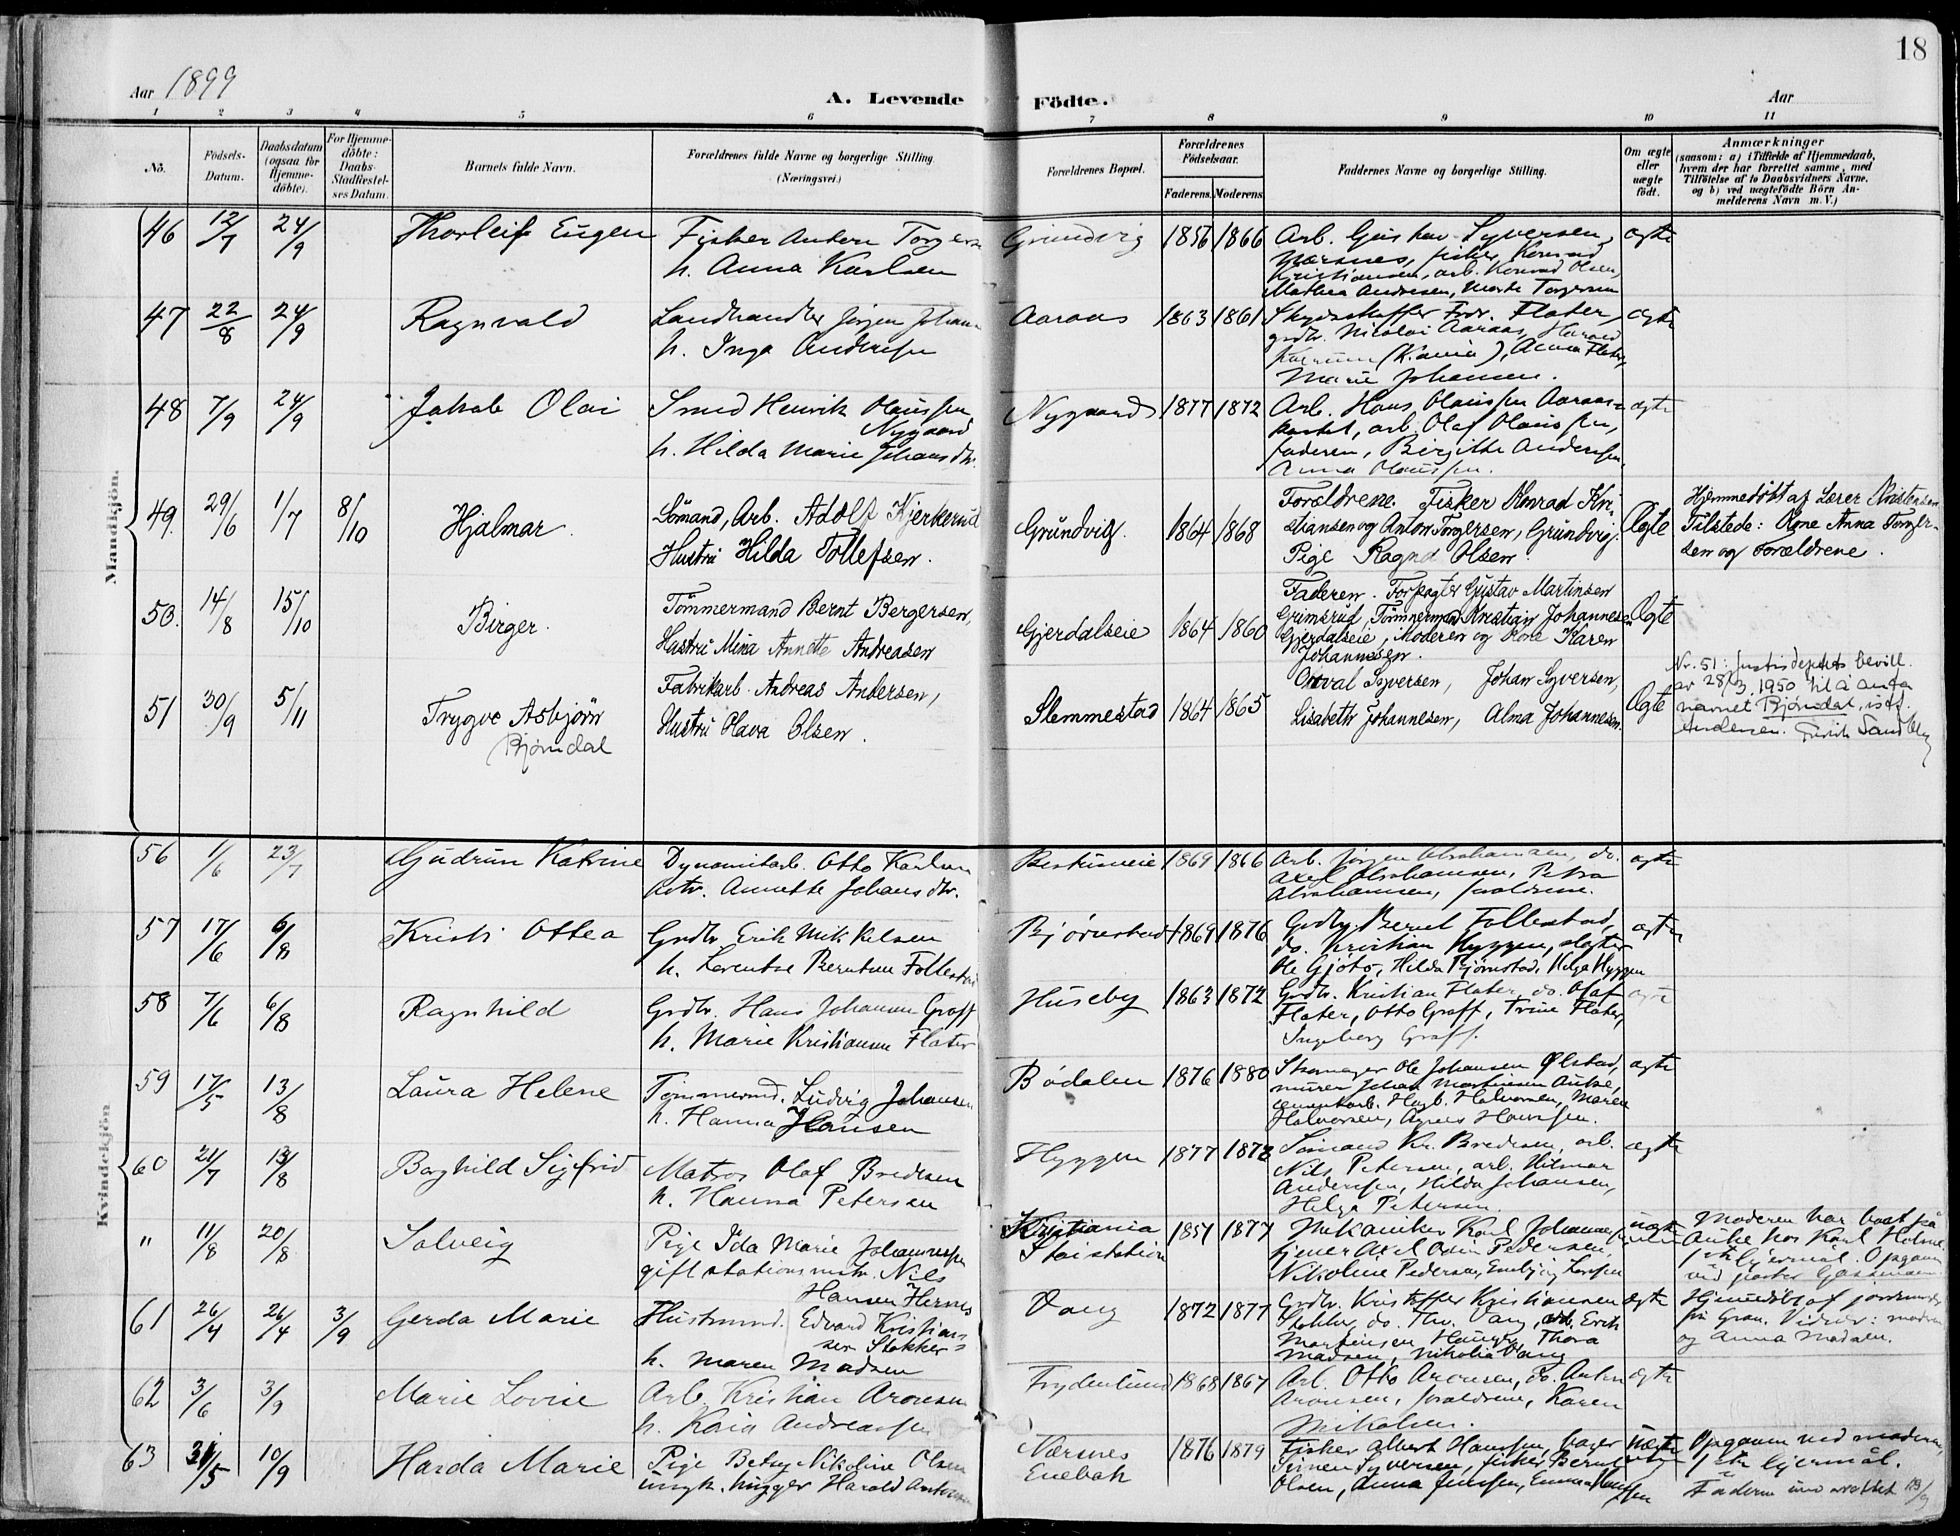 18
Aar 1899
A. Levende Födte.
Aar
1 2 3 4 5 6 7 8 9 10 11
No.
Födsels-Datum.
Daabsdatum (ogsaa for Hjemmedöbte).
For Hjemmedöbte: Daabs-Stadfæstelses Datum.
Barnets fulde Navn.
Forældrenes fulde Navne og borgerlige Stilling. (Næringsvei.)
Forældrenes Bopæl.
Forældrenes Födselsaar.
Faderens. Moderens.
Faddernes Navne og borgerlige Stilling.
Om ægte eller uægte födt.
Anmærkninger
(saasom: a) i Tilfælde af Hjemmedaab, hvem der har forrettet samme, med Tilföielse af to Daabsvidners Navne, og b) ved uægtefödte Börn Anmelderens Navn m. V.)
Mandkjön.
46 12/7 24/9 Thorleif Eugen
Fisker Anton Torgersen
h. Anna Karlsen
Grundvig 1856 1866
Arb. Gustav Syversen,
Nærsnes, fisker Konrad
Kristiansen, arb. Konrad Olsen,
Mathea Andresen, Marte Torgersen
ægte
47 22/8 24/9 Ragnvald
Landhandler Jørgen Johan
h. Inga Andersen
Aaraas 1863 1861
Skydsskaffer Fredr. Flater,
grdbr. Nicolai Aaraas, Harald
Marie Johansen.
ægte
48 7/9 24/9 Jakob Olai
Smed Henrik Olaussen
Nygaard
h. Hilda Marie Johansdtr.
Nygaard 1877 1872
Arb. Hans Olaussen Aaraas-
arb. Olaf Olaussen,
faderen, Birgitte Andersen,
Anna Olaussen.
ægte
49. 29/6 1/7 8/10 Hjalmar.
Sömand, Arb. Adolf Kjerkerud
Hustru Hilda Tollefsen.
Grundvig. 1864 1868
Forældrene. Fisker Konrad Kri-
stiansen og Anton Torgersen, Grundvig.
Pige Ragna Olsen.
Ægte
Hjemmedöbt af Lærer Kristensen
Tilstede: Kone Anna Torger-
sen og Forældrene.
50. 14/8 15/10 Birger.
Tömmermand Bernt Bergersen,
Hustru Mina Annette Andreasen
Gjerdalseie 1864 1860
Faderen. Forpagter Gustav Martinsen
Grimsrud, Tömmermand Kristian Johannesen
Gjerdalseie, Moderen og Kone Karen
Johannesen.
Ægte
51 30/9 5/11 Trygve Asbjörn
Bjørndal
Fabrikarb. Andreas Andersen,
Hustru Olava Olsen.
Slemmestad 1864 1865
Syversen, Johan Syversen,
Lisabeth Johannesen, Alma Johannesen.
Ægte
Nr. 51: Justisdeptets bevill.
av 28/3 1950 til å anta
navnet Bjørndal, istf.
Andersen.
Kvindekjön
56 1/6 23/7 Gudrun Katrine
Dynamitarb. Otto Karlsen
Annette Johansdtr.
1869 1866
Arb. Jørgen Abrahamsen, do.
Axel Abrahamsen, Petra
Abrahamsen, forældrene.
ægte
57 17/6 6/8 Kristi Ottea
Grdbr. Erik Mikkelsen
h. Lorentse Berntsen Follestad
Bjørnstad 1869 1876
Grdbr. Bernt Follestad,
do. Kristian Hyggen, slagter
Ole Gjøto, Hilda Bjørnstad, Helga Hyggen
ægte
58 7/6 6/8 Ragnhild
Grdbr. Hans Johansen Graff
h. Marie Kristiansen Flater
Huseby 1863 1872
Grdbr. Kristian Flater, do. Olaf
Flater, Otto Graff, Trine Flater,
Ingeborg Graff.
ægte
59 17/5 13/8 Laura Helene
Tømmermd. Ludvig Johansen
h. Hanna Hansen
Bødalen 1876 1880
Skomager Ole Johansen Ølstad,
murer Johan Martinsen Auke,
cementarb. Hagb. Halvorsen, Maren
Halvorsen, Agnes Hansen.
ægte
60 21/7 13/8 Borghild Sigfrid
Matros Olaf Bredesen
h. Hanna Petersen
Hyggen 1877 1872
Sømand Kr. Bredesen, arb.
Nils Petersen, arb. Hilmar
Andersen, Hilda Johansen,
Helga Petersen.
ægte
" 11/8 20/8 Solveig
Pige Ida Marie Johannessen
gift stationsmstr. Nils
Hansen Hernes
Kristiania
1851 1877
Mekaniker Karl Johannessen,
Axel Odin Pedersen,
Nikoline Pedersen,
uægte
Moderen har boet på
Auke hos Karl Holme
1ste leiermål. Opgaven
61 26/4 26/4 3/9 Gerda Marie
Husmand Edvard Kristian-
sen Stokker
h. Maren Madsen
Vang 1872 1877
Grdbr. Kristoffer Kristiansen
Stokker, do. Thv. Vang, arb. Erik
Martinsen Haugen, Thora
Madsen, Nikolia Vang
ægte
Hjemmedøbt af jordmor
Vidner: moderen
og Anna Madsen.
62 3/6 3/9 Marie Lovise
Arb. Kristian Aronsen
h. Kaia Andreassen
Frydenlund 1868 1867
Arb. Otto Aronsen, do. Anton
Aronsen, forældrene, Karen
Mikalsen.
ægte
63 31/5 10/9 Harda Marie
Pige Betzy Nikoline Olsen
ungk. Harald Antonsen
Nærsnes
Enebak
1876 1879
Fisker Albert Hanssen, bager
Simen Syversen, fisker Bernt
Olsen, Anna Jensen, Emma Hansen
uægte
Opgaven ved moderen,
1ste leiermål.
Faderen 13/9